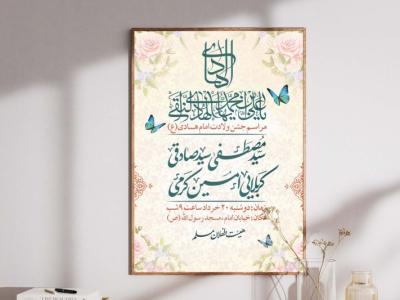 الهادی
یا علی بن محمد ایها الهادی النقی
مراسم جشن ولادت امام هادی (ع)
سید مصطفی سیدصادقی
کربلایی امین کرمی
زمان: دوشنبه ۲۰ خرداد ساعت ۹ شب
مکان: خیابان امام، مسجد رسول الله (ص)
هیئت طفلان مسلم